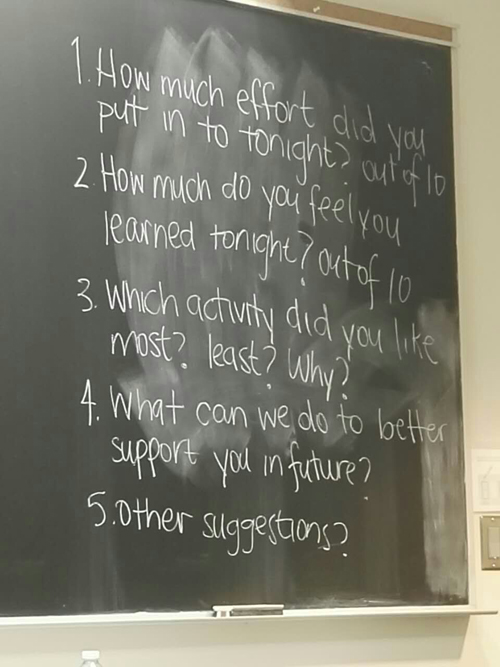 1. How much effort did you
put in to tonight? out of 10
2. How much do you feel you
learned tonight? out of 10
3. Which activity did you like
most? least? Why?
4. What can we do to better
support you in future?
5. Other suggestions?